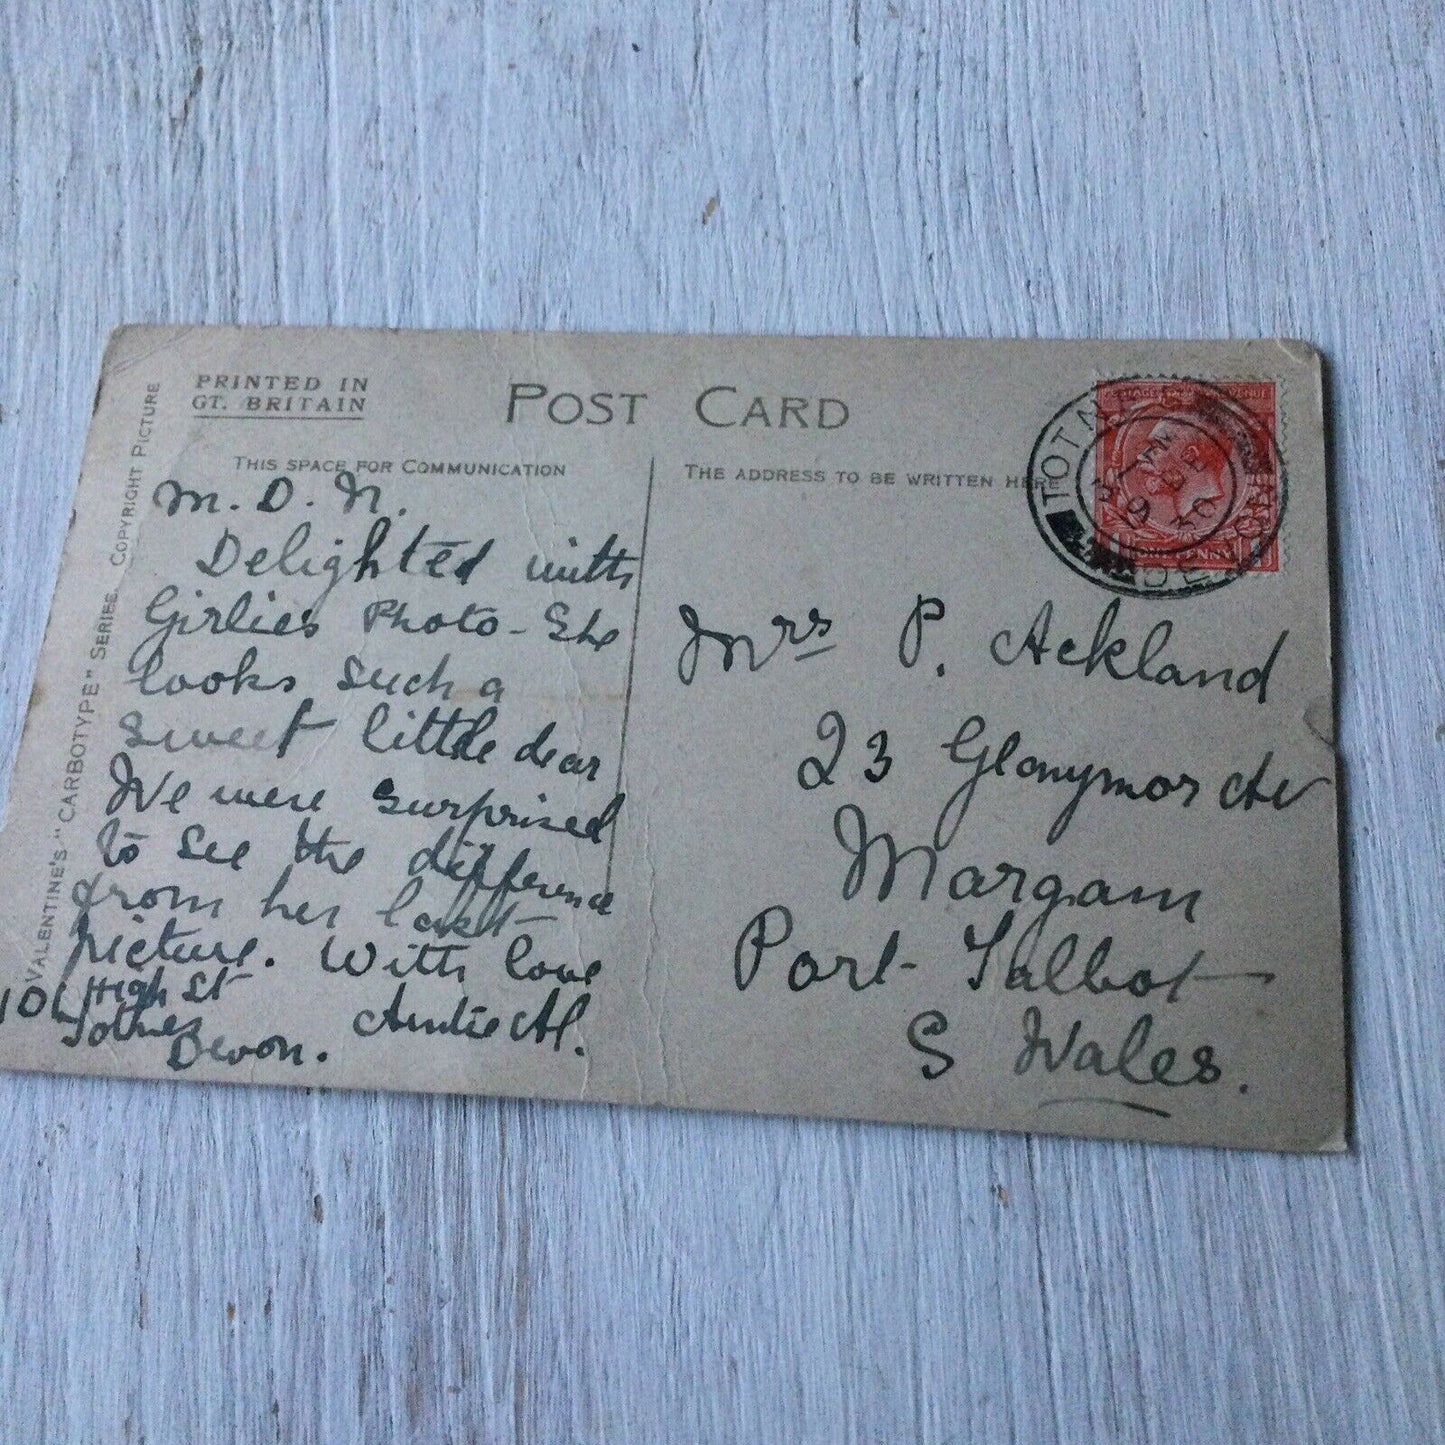 PRINTED IN
GT. BRITAIN
POST CARD
THIS SPACE FOR COMMUNICATION
THE ADDRESS TO BE WRITTEN HERE
VALENTINE'S "CARBOTYPE" SERIES. COPYRIGHT PICTURE
M. D. N.
Delighted with
Girlies Photo - She
looks such a
sweet little dear
We were surprised
to see the difference
from her last
picture. With love
Auntie Al.
High St
Totnes
Devon.
Mrs P. Ackland
23 Glanymor Av
Margam
Port Talbot
S Wales.
TOTNES
DEVON
30